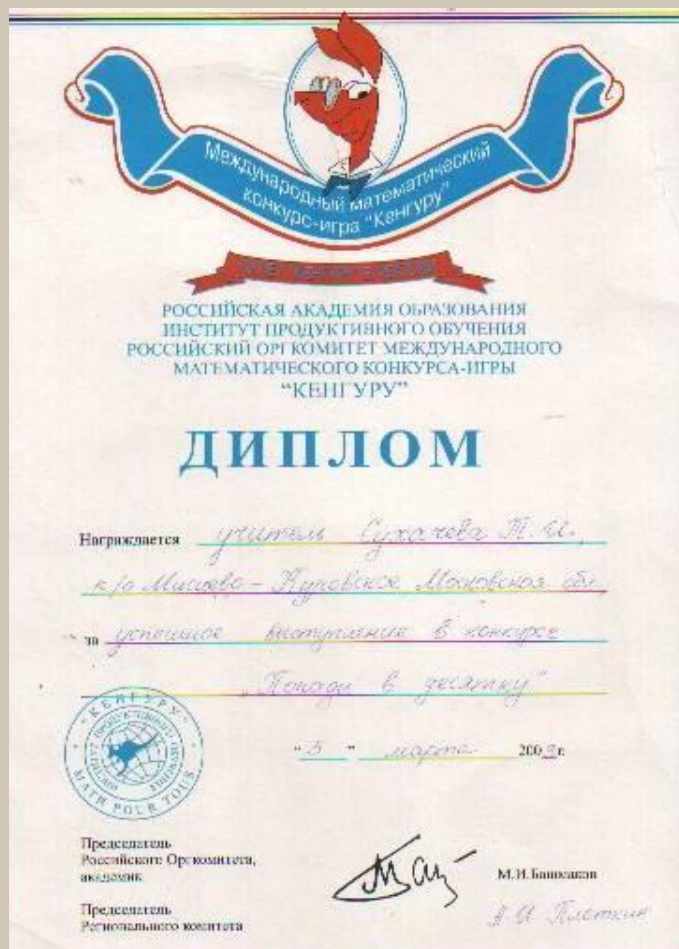 Международный математический
конкурс-игра "Кенгуру"
РОССИЙСКАЯ АКАДЕМИЯ ОБРАЗОВАНИЯ
ИНСТИТУТ ПРОДУКТИВНОГО ОБУЧЕНИЯ
РОССИЙСКИЙ ОРГКОМИТЕТ МЕЖДУНАРОДНОГО
МАТЕМАТИЧЕСКОГО КОНКУРСА-ИГРЫ
"КЕНГУРУ"
ДИПЛОМ
Награждается учитель Сухачева Т. И.,
Московская обл
за успешное выступление в конкурсе
"Попади в десятку"
"КЕНГУРУ"
MATH POUR TOUS
" 5 " марта 2009г.
Председатель
Российского Оргкомитета,
академик
М.И.Башмаков
Председатель
Регионального комитета
А И Плоткин